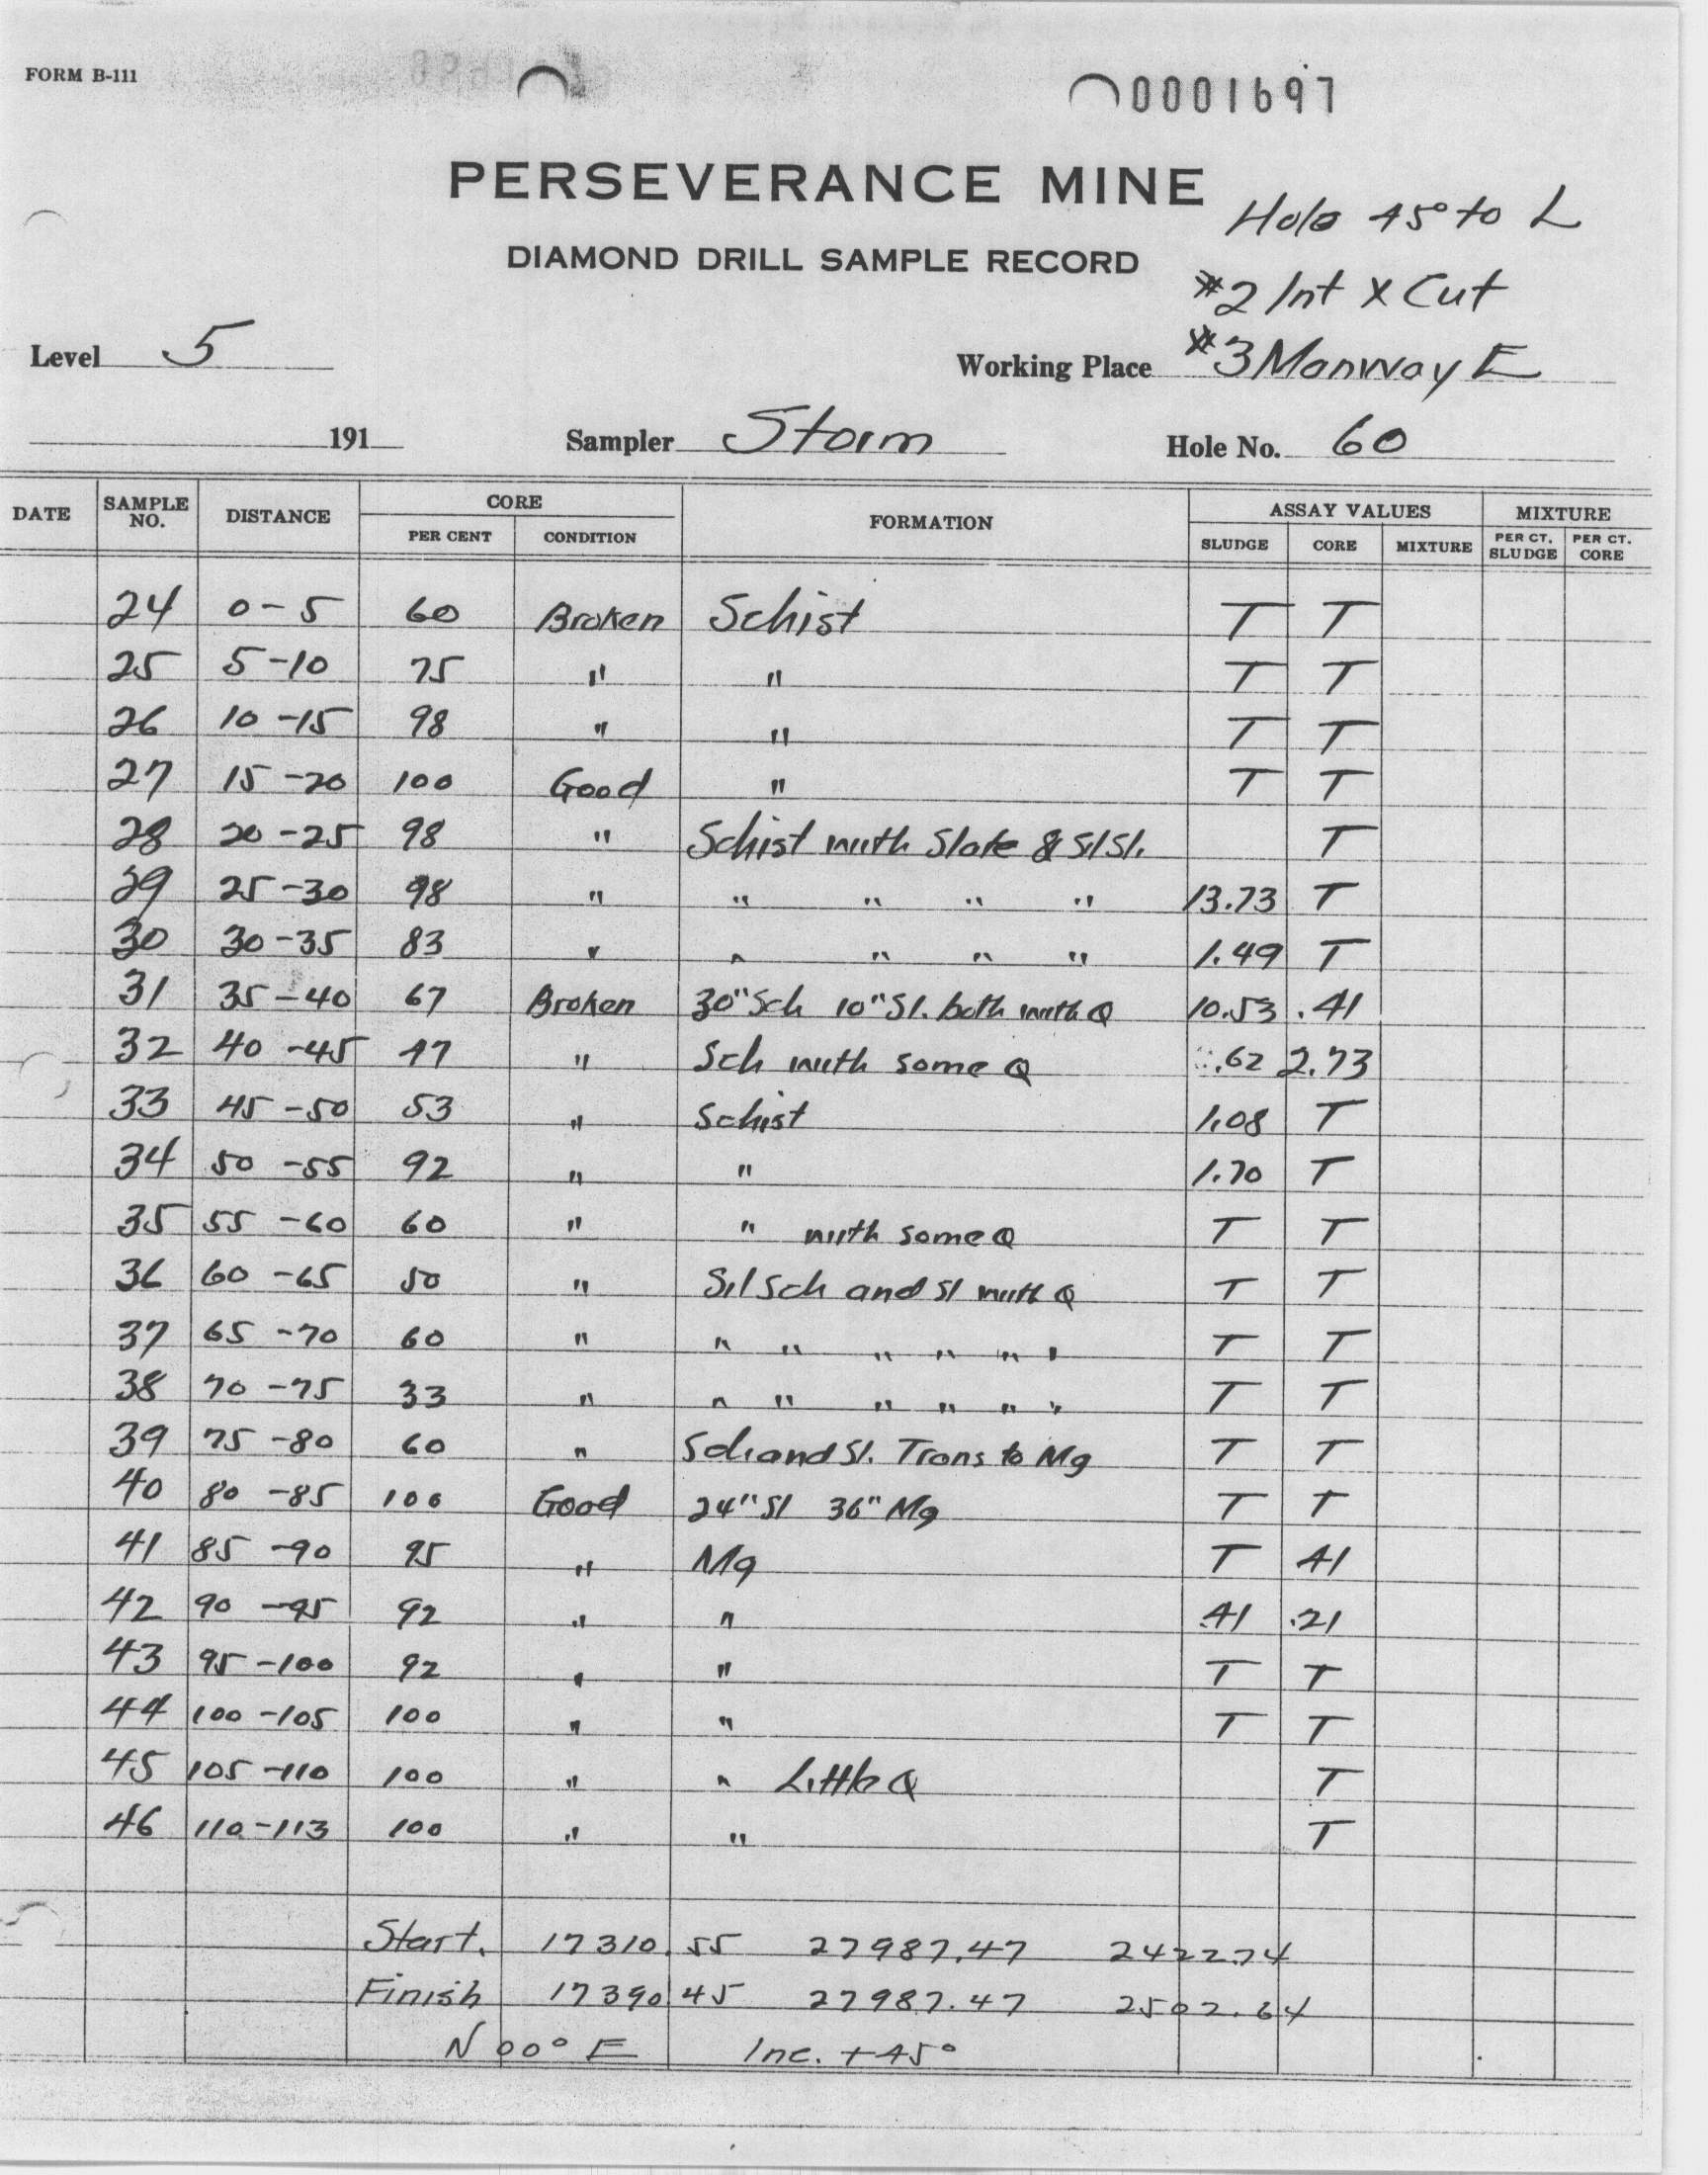 FORM B-111
0001697
PERSEVERANCE MINE
Hole 45° to L
DIAMOND DRILL SAMPLE RECORD
#2 Int X Cut
Level 5 Working Place #3 Manway E
191 Sampler Storm Hole No. 60
DATE SAMPLE NO. DISTANCE CORE PER CENT CONDITION FORMATION ASSAY VALUES SLUDGE CORE MIXTURE MIXTURE PER CT. SLUDGE PER CT. CORE
24 0-5 60 Broken Schist T T
25 5-10 75 " " T T
26 10-15 98 " " T T
27 15-20 100 Good " T T
28 20-25 98 " Schist with Slate & Sil Sl. T
29 25-30 98 " " " " " 13.73 T
30 30-35 83 " " " " " 1.49 T
31 35-40 67 Broken 30" Sch 10" Sl. both with Q 10.53 .41
32 40-45 47 " Sch with some Q .62 2.73
33 45-50 53 " Schist 1.08 T
34 50-55 92 " " 1.70 T
35 55-60 60 " " with some Q T T
36 60-65 50 " Sil Sch and Sl with Q T T
37 65-70 60 " " " " " " " T T
38 70-75 33 " " " " " " " T T
39 75-80 60 " Sch and Sl. Trans to Mg T T
40 80-85 100 Good 24" Sl 36" Mg T T
41 85-90 95 " Mg T .41
42 90-95 92 " " .41 .21
43 95-100 92 " " T T
44 100-105 100 " " T T
45 105-110 100 " " Little Q T
46 110-113 100 " " T
Start. 17310.55 27987.47 2422.74
Finish 17390.45 27987.47 2502.64
N 00° E Inc. +45°